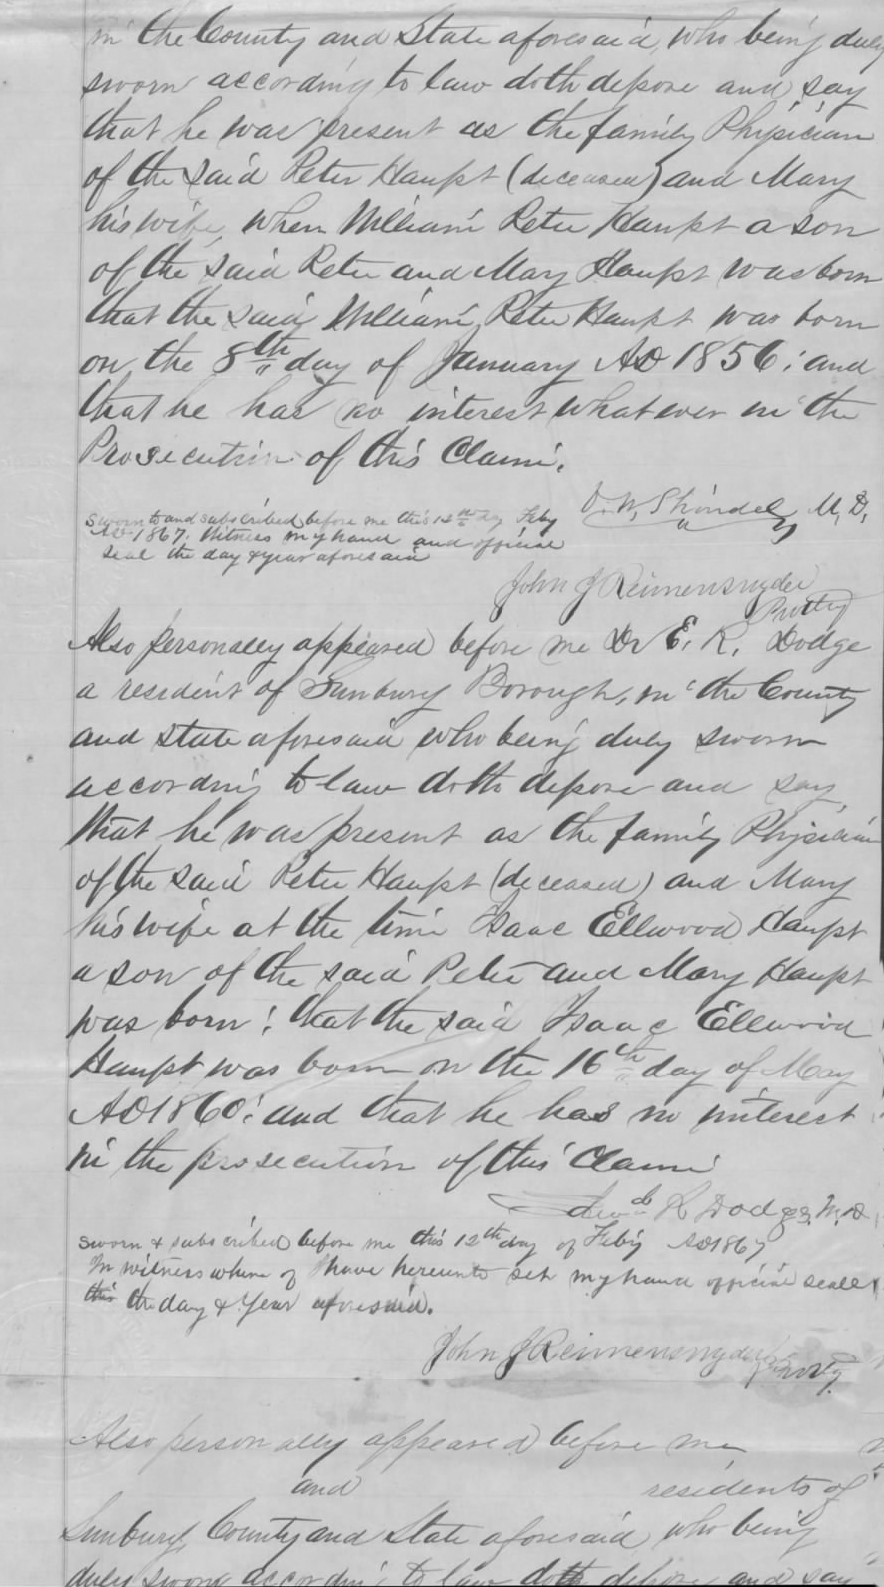 in the County and State aforesaid, who being duly
sworn according to law doth depose and say
that he was present as the family Physician
of the said Peter Haupt (deceased) and Mary
his wife, when William Peter Haupt a son
of the said Peter and Mary Haupt was born
that the said William Peter Haupt was born
on the 8th day of January AD 1856: and
that he has no interest whatever in the
Prosecution of this Claim.
D. W. Shindel, M, D,
Sworn to and subscribed before me this 12th day Feby
AD 1867. Witness my hand and official
seal the day & year aforesaid
John J Reimensnyder
Prothy
Also personally appeared before me Dr E. R. Dodge
a resident of Sunbury Borough, in the County
and State aforesaid who being duly sworn
according to law doth depose and say,
that he was present as the family Physician
of the said Peter Haupt (deceased) and Mary
his wife at the time Isaac Ellwood Haupt
a son of the said Peter and Mary Haupt
was born; that the said Isaac Ellwood
Haupt was born on the 16th day of May
AD 1860: and that he has no interest
in the prosecution of this Claim
R Dodge, M.D.
Sworn & subscribed before me this 12th day of Feby AD 1867
In witness where of I have hereunto set my hand official seal
this the day & Year aforesaid.
John J Reimensnyder
Prothy.
Also personally appeared before me
and residents of
Sunbury, County and State aforesaid who being
duly sworn according to law doth depose and say